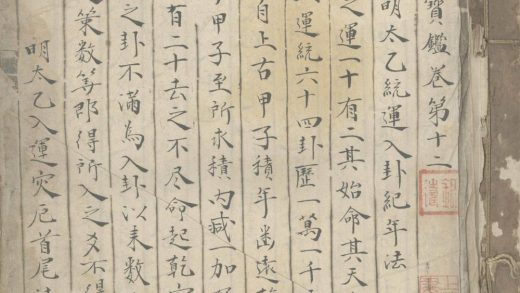 寶鑑卷第十二
明太乙統運入卦紀年法
之運一十有二其始命其天
運統六十四卦歷一萬一千
自上古甲子積年歲遠
甲子至所求積內减一加
有二十去之不尽命起乾
之卦不滿為入卦以来數
策数等郡得所入之爻不得
明太乙入運灾厄首尾